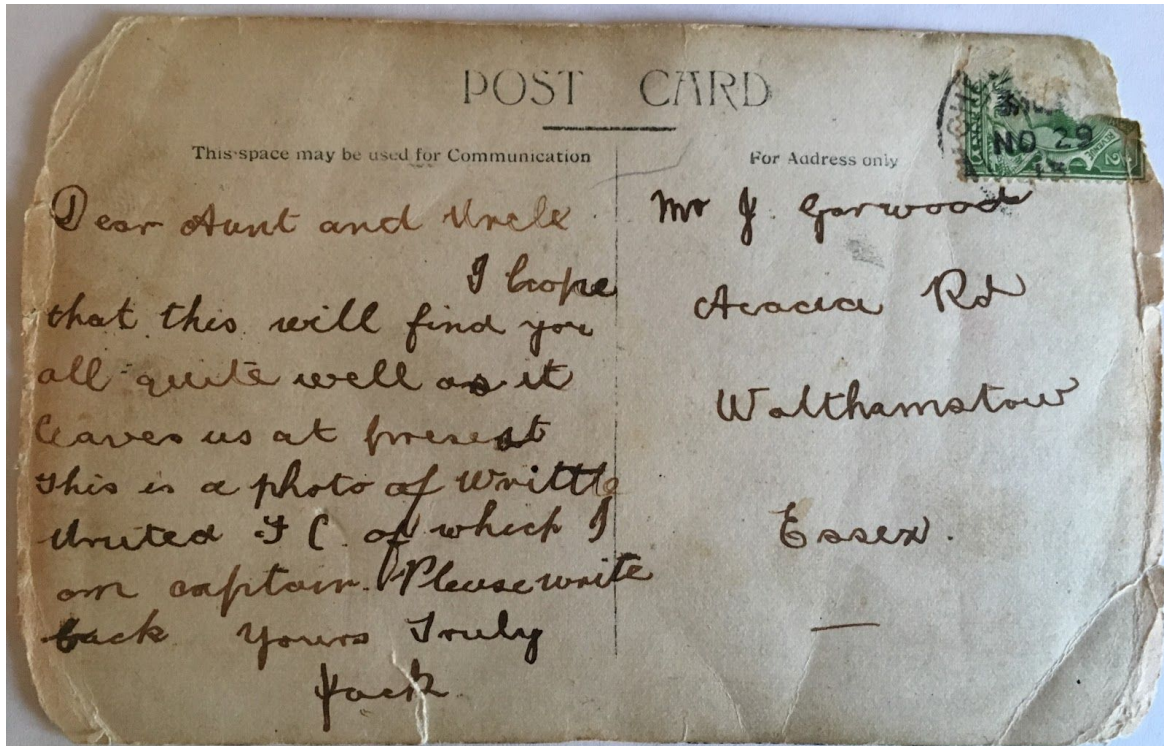 POST CARD
This space may be used for Communication
Dear Aunt and Uncle
I hope
that this will find you
all quite well as it
leaves us at present
This is a photo of Writtle
United F C of which I
am captain. Please write
back Yours Truly
Jack
For Address only
NO 29
Mr J. Garwood
Acacia Rd
Walthamstow
Essex.